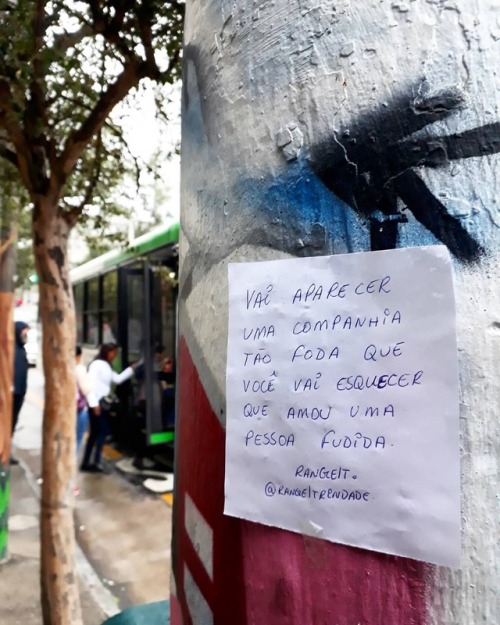 VAI APARECER
UMA COMPANHIA
TÃO FODA QUE
VOCÊ VAI ESQUECER
QUE AMOU UMA
PESSOA FUDIDA.
RANGELT.
@RANGELTRINDADE